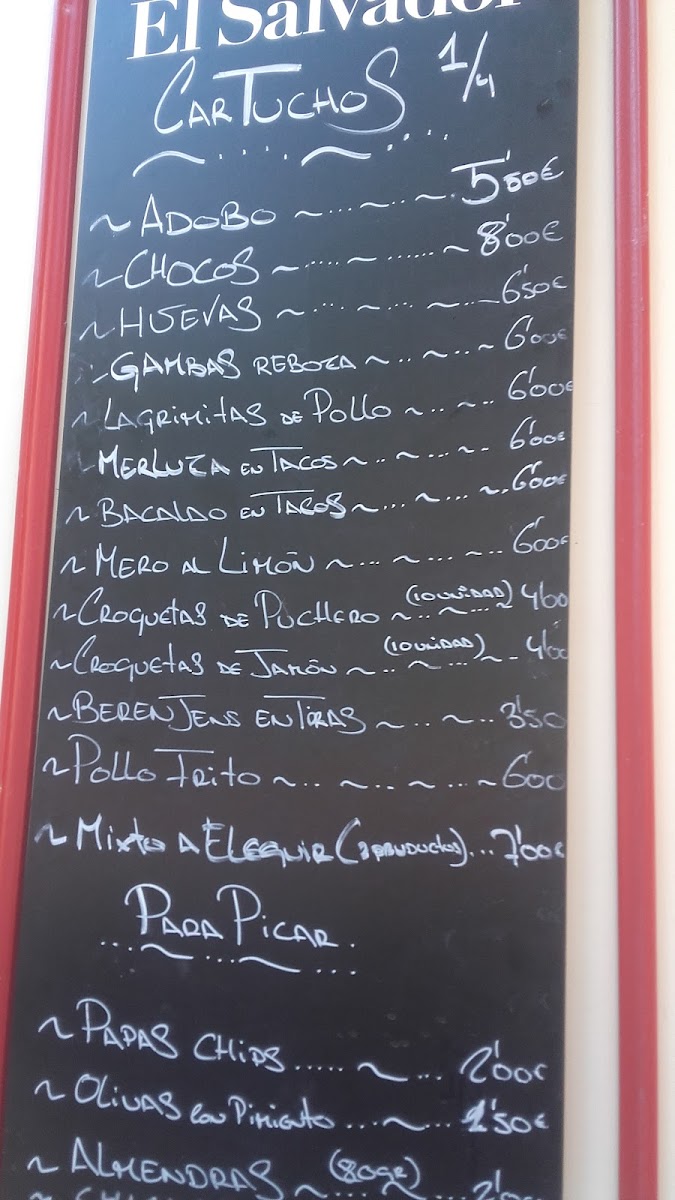 El Salvador
CARTUCHOS 1/4
~ ADOBO ~...~..~. 5'50€
~ CHOCOS ~.....~......~ 8'00€
~ HUEVAS ~...~....~... 6'50€
~ GAMBAS REBOZA ~..~..~ 6'00€
~ LAGRIMITAS DE POLLO ~..~.. 6'00€
~ MERLUZA EN TACOS ~..~...~.. 6'00€
~ BACALAO EN TACOS ~...~...~.. 6'00€
~ MERO AL LIMÓN ~...~...~.. 6'00€
~ CROQUETAS DE PUCHERO ~..~...~ (10 UNIDAD) 4'00
~ CROQUETAS DE JAMÓN ~..~...~.. (10 UNIDAD) 4'00
~ BERENJENS EN TIRAS ~..~... 3'50
~ POLLO FRITO ~...~..~...~ 6'00
~ MIXTO A ELEGUIR (3 PRODUCTOS)... 7'00€
PARA PICAR
~ PAPAS CHIPS .....~... 2'00€
~ OLIVAS CON PIMIENTO ...~... 1'50€
~ ALMENDRAS ~...~... (80GR)